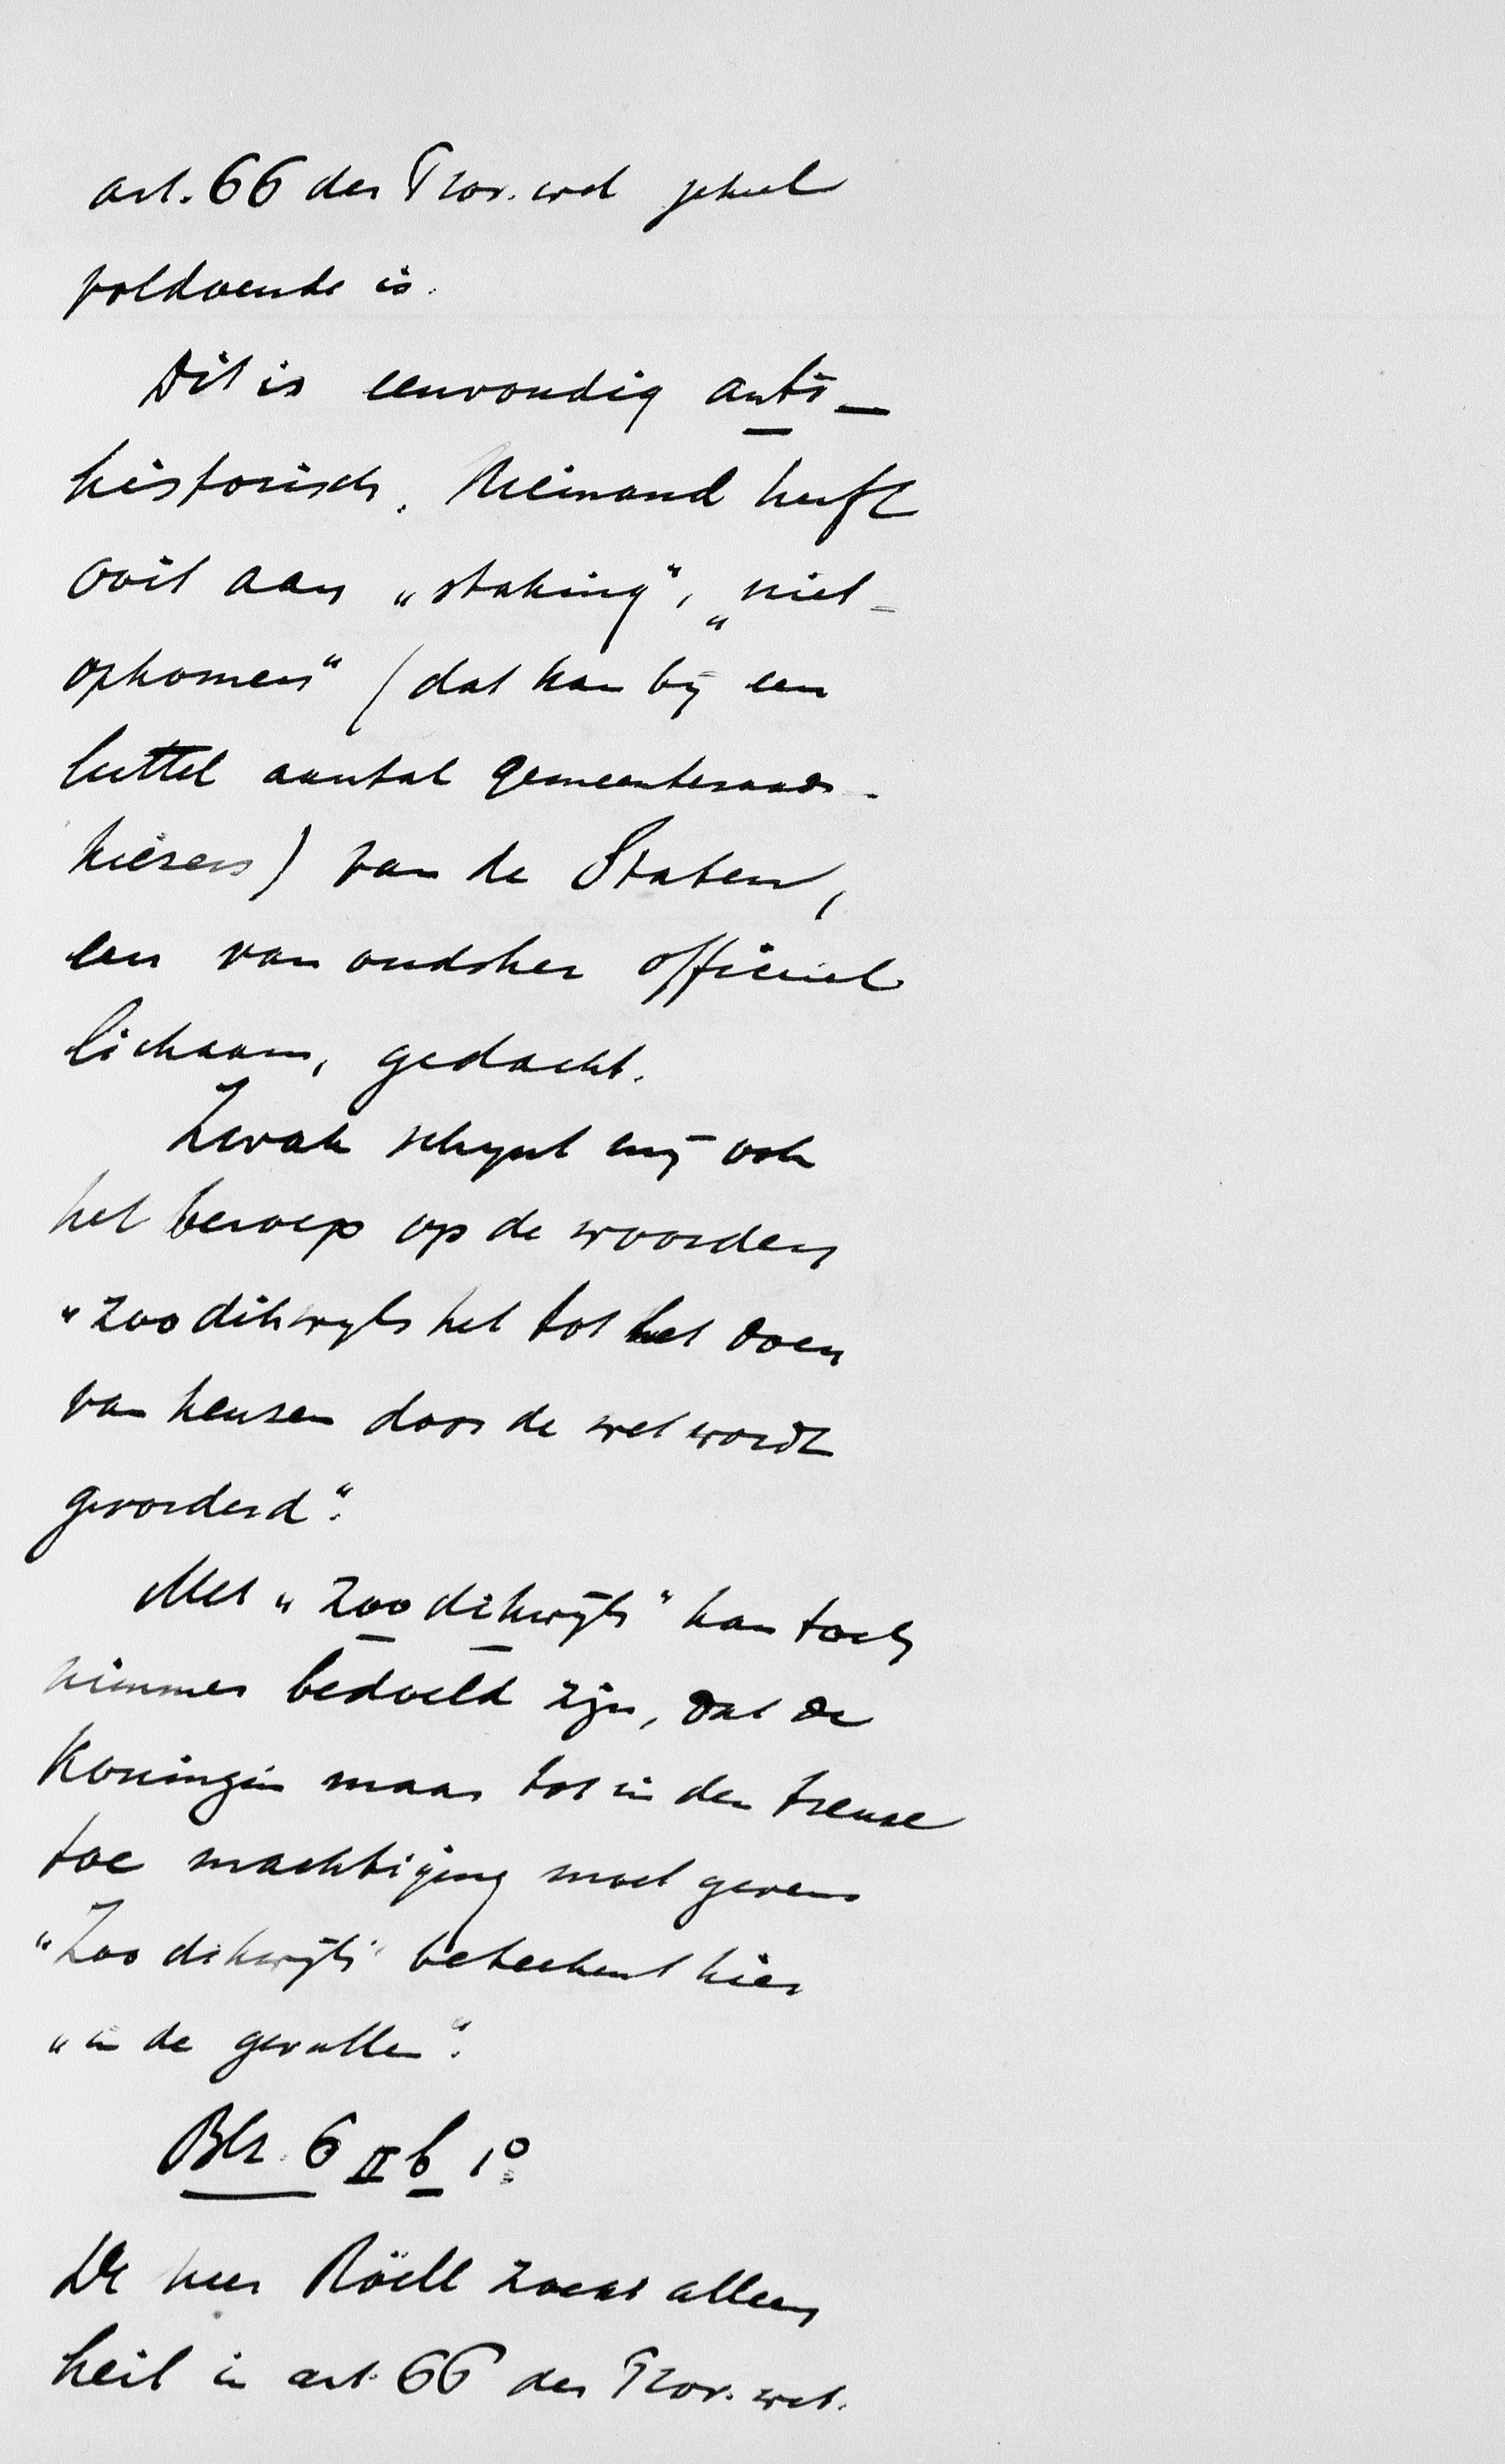 art. 66 der Prov. wet geheel
voldoende is.
Dit is eenvoudig anti-
historisch. Niemand heeft
ooit aan „staking“, „niet-
opkomen“ (dat kan bij een
luttel aantal gemeenteraads-
kiezers) van de Staten,
een van oudsher officieel
lichaam, gedacht.
Zwak schijnt mij ook
het beroep op de woorden
„zoo dikwyls het tot het doen
van keuzen door de wet wordt
gevorderd“.
Met „zoo dikwijls“ kan toch
nimmer bedoeld zijn, dat de
Koningin maar tot in den treure
toe machtiging moet geven
„Zoo dikwijls“ beteekent hier
„in de gevallen“.
Blz. 6 II b 1o
De heer Röell zoekt alleen
heil in art. 66 der Prov. wet.